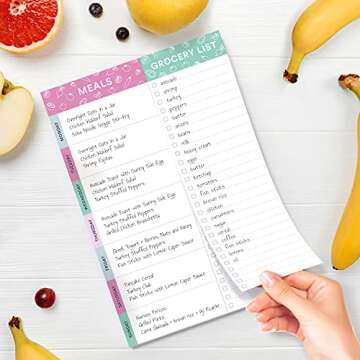 MEALS
GROCERY LIST
Overnight Oats in a Jar
Chicken Waldorf Salad
Soba Noodle Veggie Stir-fry
Overnight Oats in a Jar
Chicken Waldorf Salad
Shrimp Fajitas
Avocado Toast with Sunny Side Egg
Chicken Waldorf Salad
Turkey Stuffed Peppers
Avocado Toast with Sunny Side Egg
Turkey Stuffed Peppers
Grilled Chicken Bruschetta
Greek Yogurt + Berries, Nuts and Honey
Turkey Stuffed Peppers
Fish Sticks with Lemon Caper Sauce
Pancake Cereal
Turkey Club
Fish Sticks with Lemon Caper Sauce
Grilled Pizza
Carne Guisada + brown rice +
avocado
shrimp
turkey
peppers
butter
onion
beans
milk
heavy cream
eggs
butter
tomatoes
fish sticks
onion
chicken
cucumbers
sugar
cereal
coffee
fish sticks
beans
oil